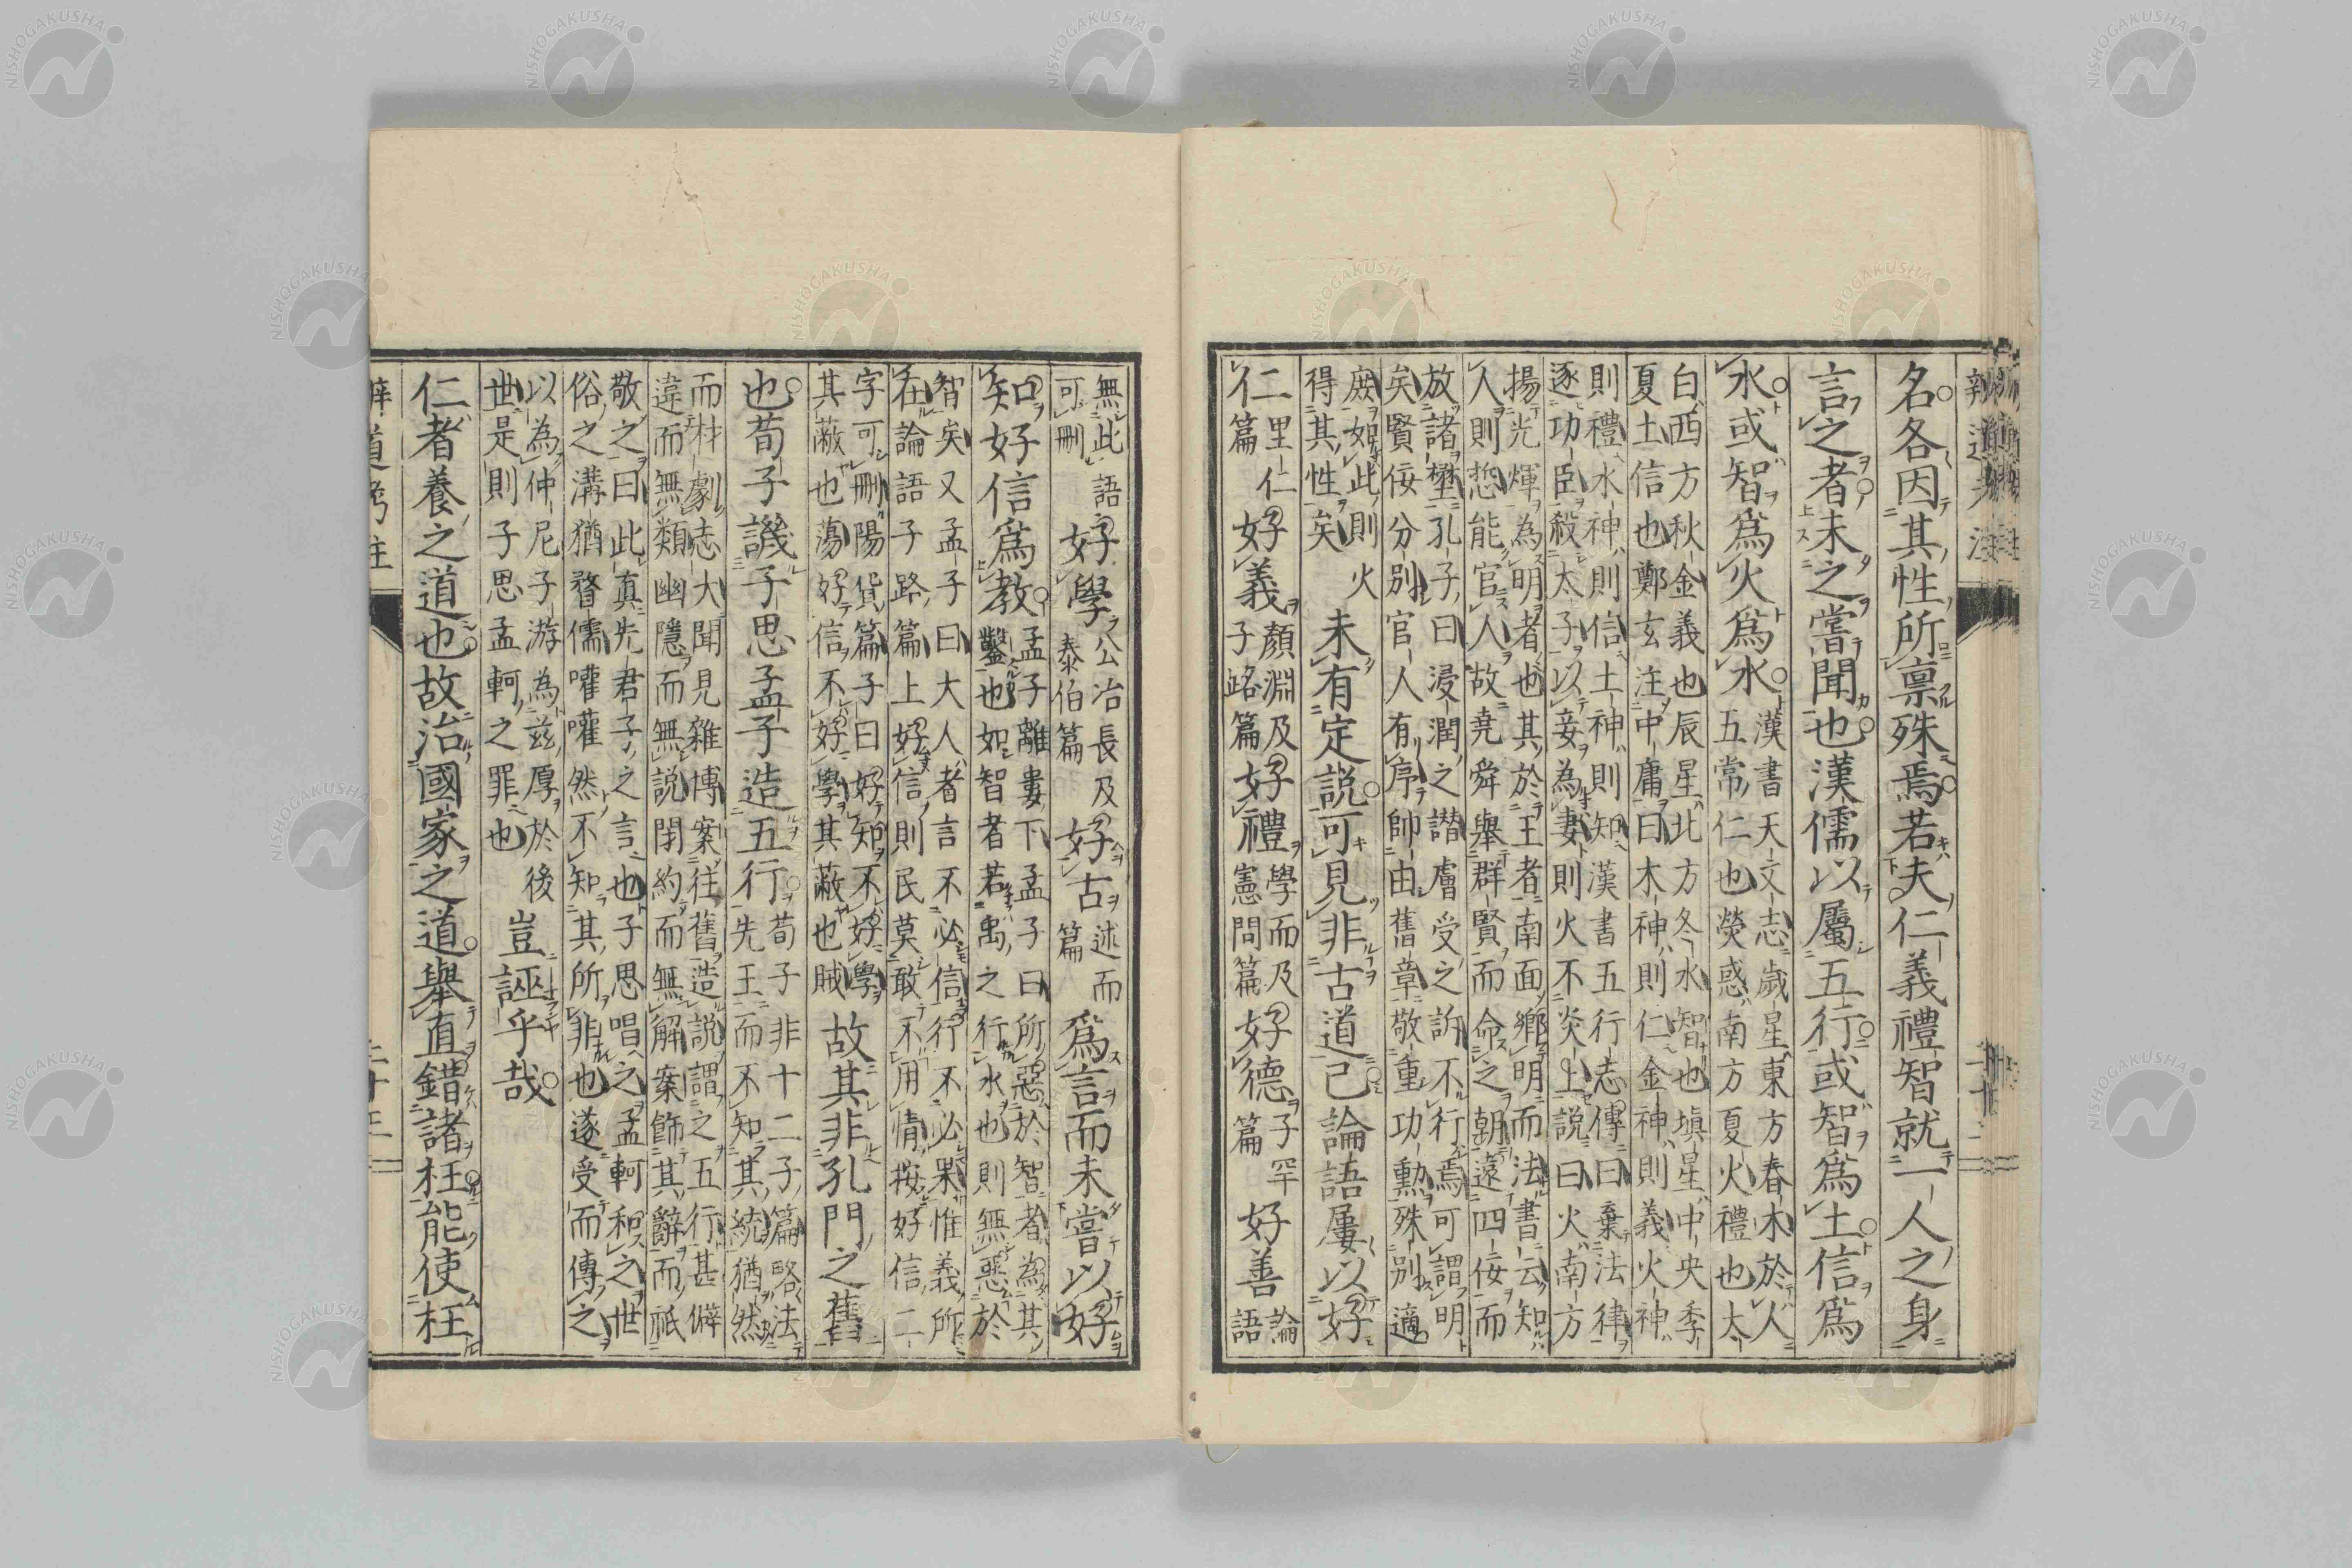 辨道考注
名各因其性所禀殊焉若夫仁義禮智就一人之身
言之者未之嘗聞也漢儒以屬五行或智爲土信爲
水或智爲火爲水漢書天文志歲星東方春木於人
五常仁也熒惑南方夏火禮也太
白西方秋金義也辰星北方冬水智也塡星中央季
夏土信也鄭玄注中庸曰木神則仁金神則義火神
則禮水神則信土神則知漢書五行志傳曰棄法律
逐功臣殺太子以妾為妻則火不炎上説曰火南方
揚光煇為明者也其於王者南面鄉明而法書云知
人則悊能官人故堯舜舉群賢而命之朝遠四佞而
放諸壄孔子曰浸潤之譖膚受之訴不行焉可謂明
矣賢佞分別官人有序帥由舊章敬重功勳殊別適
庶如此則火
得其性矣未有定説可見非古道已論語屢以好
仁里仁篇好義顏淵及子路篇好禮學而及憲問篇好德子罕篇好善論語
無此語可刪好學公冶長及泰伯篇好古述而篇爲言而未嘗以好
知好信爲教孟子離婁下孟子曰所惡於智者為其
鑿也如智者若禹之行水也則無惡於
智矣又孟子曰大人者言不必信行不必果惟義所
在論語子路篇上好信則民莫敢不用情按好信二
字可刪陽貨篇子曰好知不好學
其蔽也蕩好信不好學其蔽也賊故其非孔門之舊
也荀子譏子思孟子造五行荀子非十二子篇略法
先王而不知其統猶然
而材劇志大聞見雜博案往舊造説謂之五行甚僻
違而無類幽隱而無説閉約而無解案飾其辭而祇
敬之曰此真先君子之言也子思唱之孟軻和之世
俗之溝猶瞀儒嚾嚾然不知其所非也遂受而傳之
以為仲尼子游為茲厚於後
世是則子思孟軻之罪也豈誣乎哉
仁者養之道也故治國家之道舉直錯諸枉能使枉